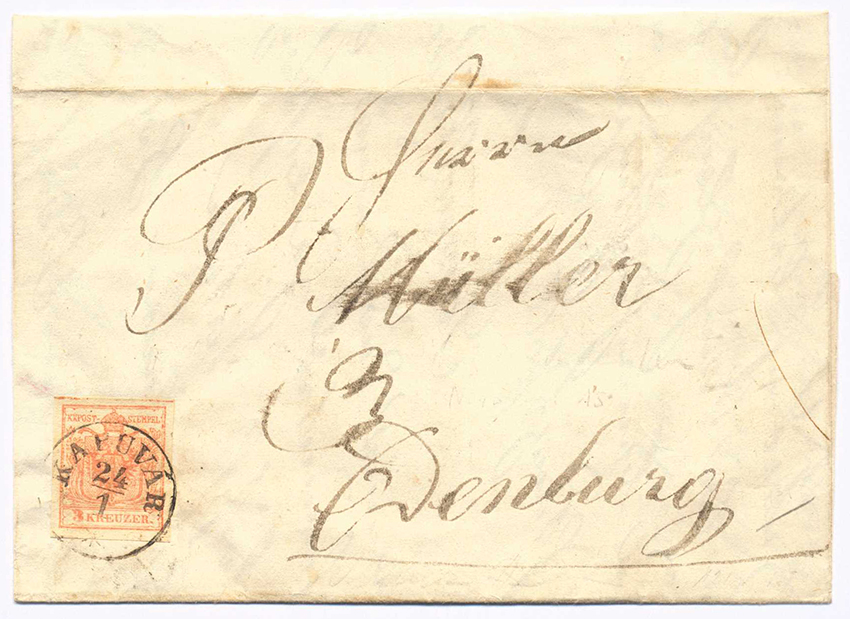 Herrn
P. Müller
Oedenburg
KKPOST-STEMPEL
KAPUVÁR
24
1
3 KREUZER.